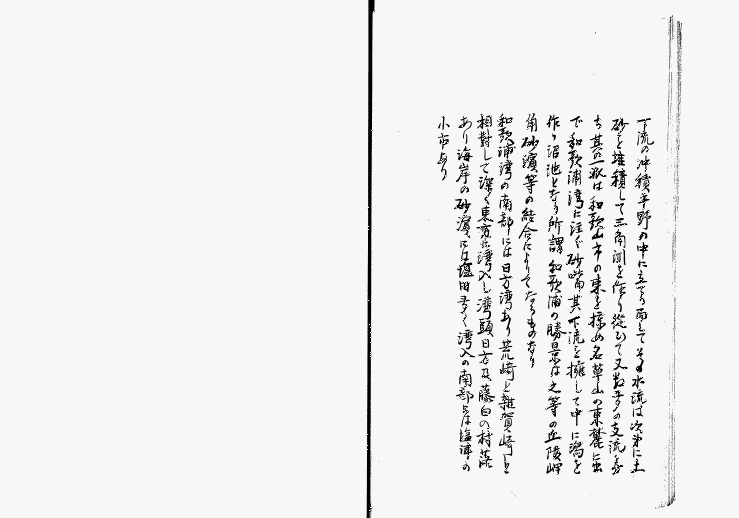 下流の沖積平野の中に立てり而して其水流は次第に土
砂を堆積して三角洲を作り従ひて又数多の支流を分
ち其の一派は和歌山市の東を掠め名草山の東麓に出
で和歌浦湾に注ぐ砂嘴其下流を擁して中に潟を
作り沼池となる所謂和歌浦の勝景は之等の丘陵岬
角砂濱等の結合によりてなるものなり
和歌浦湾の南部には日方湾あり荒崎と雑賀崎と
相対して深く東方に湾入し湾頭日方及藤白の村落
あり海岸の砂濱には塩田多く湾入の南部には塩津の
小市あり